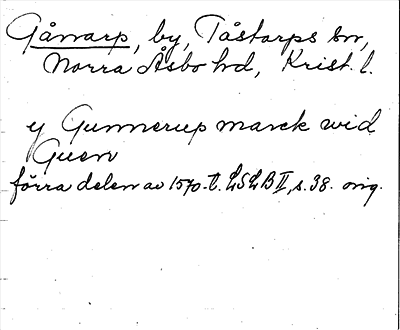 Gårrarp, by, Tåstarps sn,
Norra Åsbo hd, Krist. l.
y Gunnerup marck wid
Guen
förra delen av 1570-t. LSLB II, s. 38. orig.